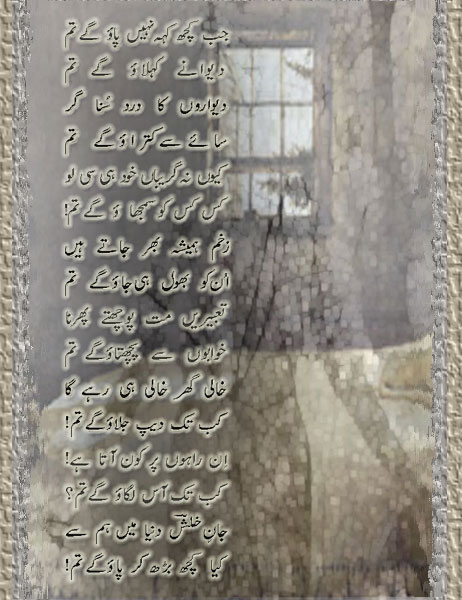 جب کچھ کہہ نہیں پاؤ گے تم
دیوانے کہلاؤ گے تم
دیواروں کا درد سُنا گر
سائے سے کتراؤ گے تم
کیوں نہ گریباں خود ہی سی لو
کس کس کو سمجھاؤ گے تم!
زخم ہمیشہ بھر جاتے ہیں
اُن کو بھول ہی جاؤ گے تم
تعبیریں مت پوچھتے پھرنا
خوابوں سے پچھتاؤ گے تم
خالی گھر خالی ہی رہے گا
کب تک دیپ جلاؤ گے تم!
اِن راہوں پر کون آتا ہے!
کب تک آس لگاؤ گے تم؟
جانِ خلشؔ دنیا میں ہم سے
کیا کچھ بڑھ کر پاؤ گے تم!